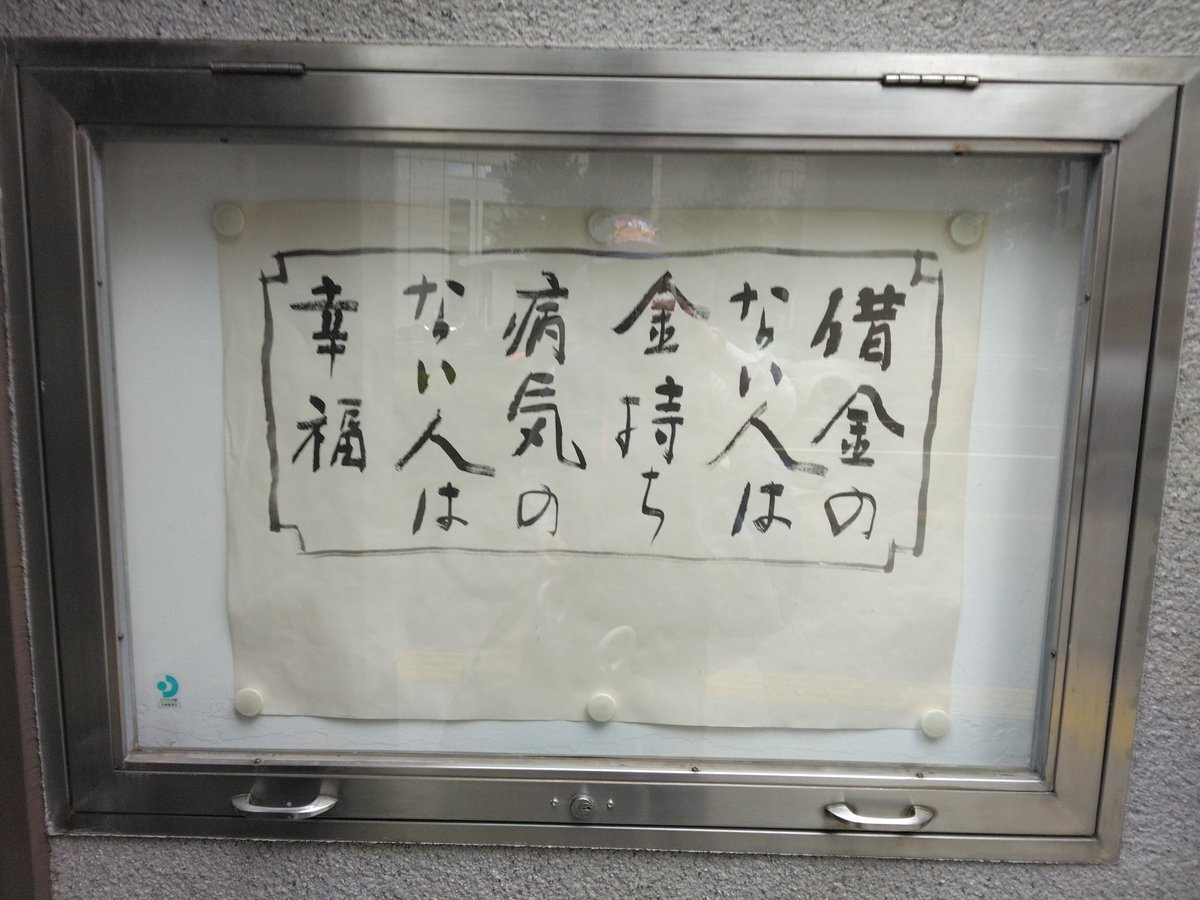 借金の
ない人は
金持ち
病気の
ない人は
幸福